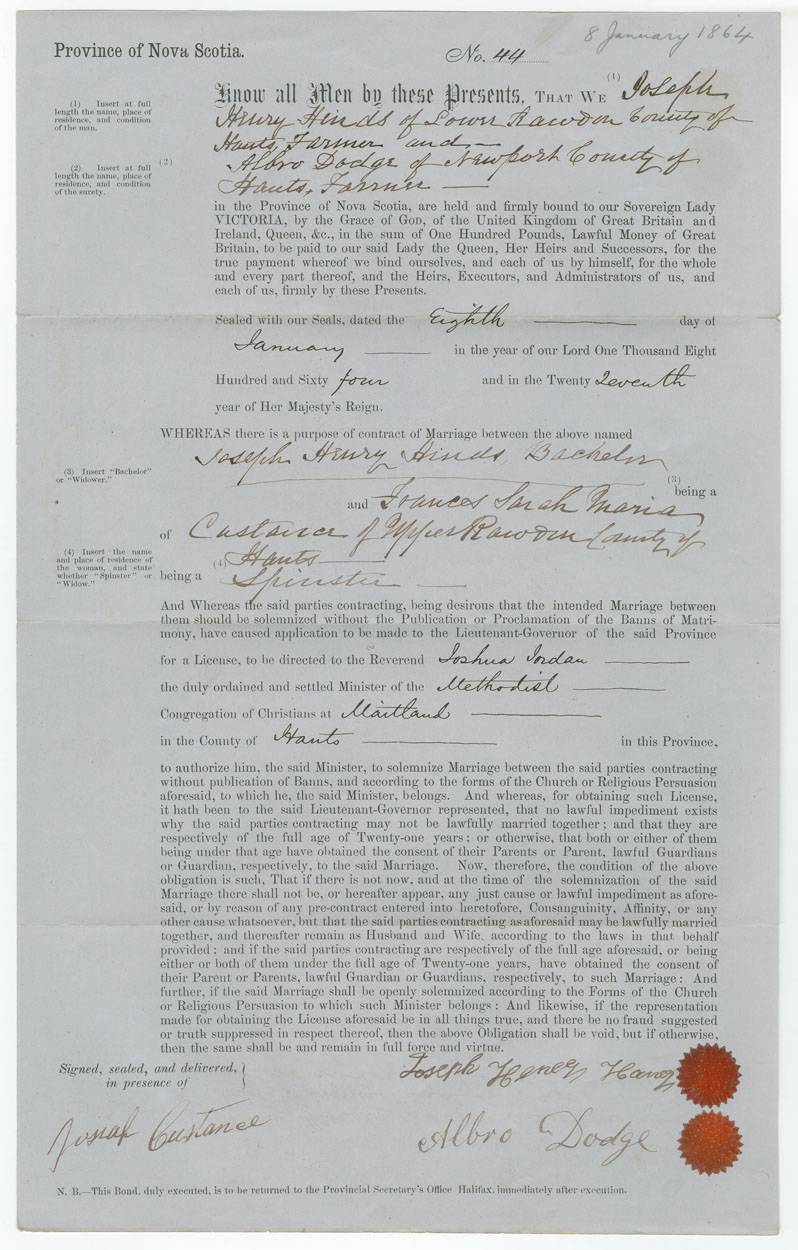 8 January 1864
Province of Nova Scotia.
No. 44
(1) Insert at full
length the name, place of
residence, and condition
of the man.
(2) Insert at full
length the name, place of
residence, and condition
of the surety.
Know all Men by these Presents, THAT WE (1) Joseph
Henry Hinds of Lower Rawdon County of
Hants, Farmer and
(2) Albro Dodge of Newport County of
Hants, Farmer
in the Province of Nova Scotia, are held and firmly bound to our Sovereign Lady
VICTORIA, by the Grace of GOD, of the United Kingdom of Great Britain and
Ireland, Queen, &c., in the sum of One Hundred Pounds, Lawful Money of Great
Britain, to be paid to our said Lady the Queen, Her Heirs and Successors, for the
true payment whereof we bind ourselves, and each of us by himself, for the whole
and every part thereof, and the Heirs, Executors, and Administrators of us, and
each of us, firmly by these Presents.
Sealed with our Seals, dated the Eighth day of
January in the year of our Lord One Thousand Eight
Hundred and Sixty four and in the Twenty Seventh
year of Her Majesty's Reign.
WHEREAS there is a purpose of contract of Marriage between the above named
Joseph Henry Hinds, Bachelor
(3) Insert "Bachelor"
or "Widower."
(3) being a
and Frances Sarah Maria
of Custance of Upper Rawdon County of
(4) Hants
being a Spinster
(4) Insert the name
and place of residence of
the woman, and state
whether "Spinster" or
"Widow."
And Whereas the said parties contracting, being desirous that the intended Marriage between
them should be solemnized without the Publication or Proclamation of the Banns of Matri-
mony, have caused application to be made to the Lieutenant-Governor of the said Province
for a License, to be directed to the Reverend Joshua Jordan
the duly ordained and settled Minister of the Methodist
Congregation of Christians at Maitland
in the County of Hants in this Province,
to authorize him, the said Minister, to solemnize Marriage between the said parties contracting
without publication of Banns, and according to the forms of the Church or Religious Persuasion
aforesaid, to which he, the said Minister, belongs. And whereas, for obtaining such License,
it hath been to the said Lieutenant-Governor represented, that no lawful impediment exists
why the said parties contracting may not be lawfully married together; and that they are
respectively of the full age of Twenty-one years; or otherwise, that both or either of them
being under that age have obtained the consent of their Parents or Parent, lawful Guardians
or Guardian, respectively, to the said Marriage. Now, therefore, the condition of the above
obligation is such, That if there is not now, and at the time of the solemnization of the said
Marriage there shall not be, or hereafter appear, any just cause or lawful impediment as afore-
said, or by reason of any pre-contract entered into heretofore, Consanguinity, Affinity, or any
other cause whatsoever, but that the said parties contracting as aforesaid may be lawfully married
together, and thereafter remain as Husband and Wife, according to the laws in that behalf
provided; and if the said parties contracting are respectively of the full age aforesaid, or being
either or both of them under the full age of Twenty-one years, have obtained the consent of
their Parent or Parents, lawful Guardian or Guardians, respectively, to such Marriage: And
further, if the said Marriage shall be openly solemnized according to the Forms of the Church
or Religious Persuasion to which such Minister belongs: And likewise, if the representation
made for obtaining the License aforesaid be in all things true, and there be no fraud suggested
or truth suppressed in respect thereof, then the above Obligation shall be void, but if otherwise,
then the same shall be and remain in full force and virtue.
Signed, sealed, and delivered,
in presence of
Joseph Henry
Josiah Custance
Albro Dodge
N. B.—This Bond, duly executed, is to be returned to the Provincial Secretary's Office Halifax, immediately after execution.